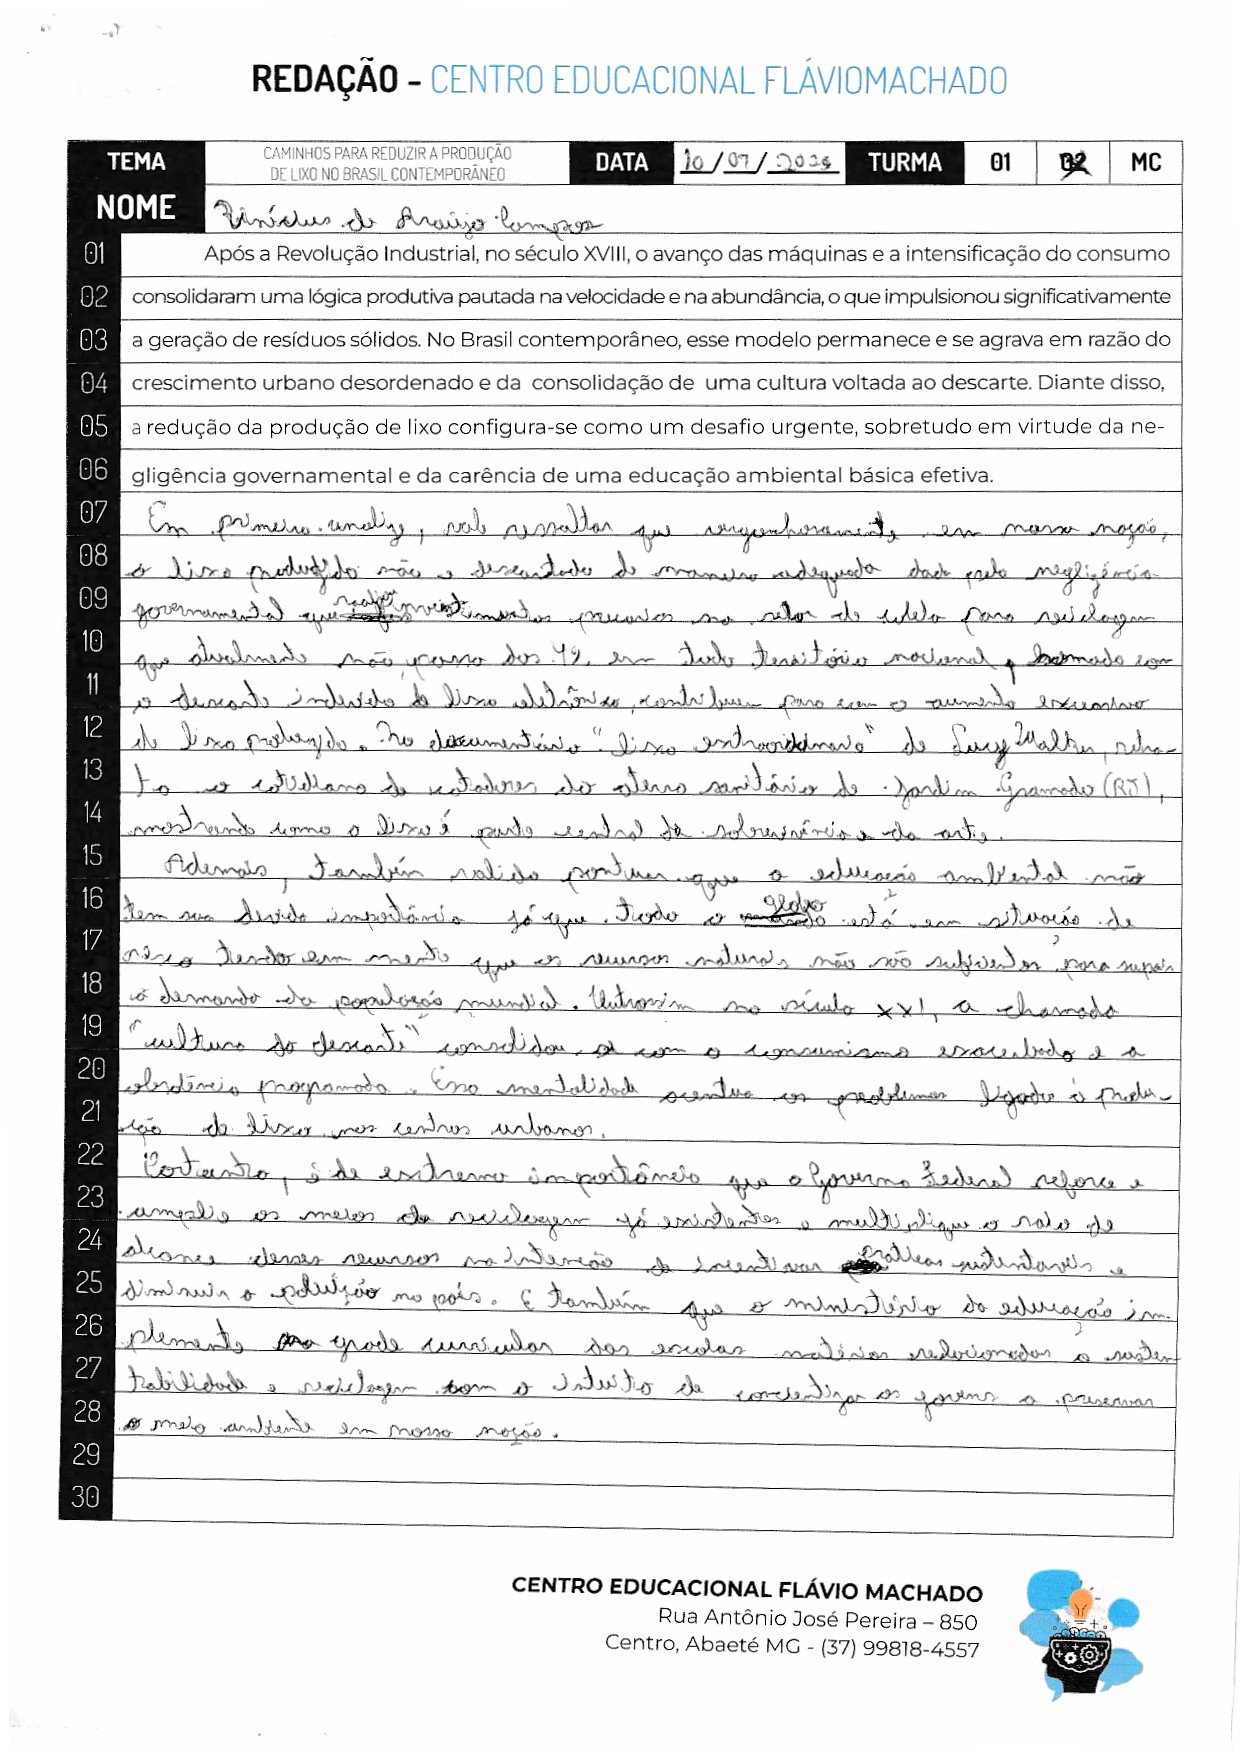 REDAÇÃO - CENTRO EDUCACIONAL FLÁVIOMACHADO
TEMA CAMINHOS PARA REDUZIR A PRODUÇÃO DE LIXO NO BRASIL CONTEMPORÂNEO DATA 10/07/2025 TURMA 01 02 MC
NOME Vinícius de Araújo Campos
01 Após a Revolução Industrial, no século XVIII, o avanço das máquinas e a intensificação do consumo
02 consolidaram uma lógica produtiva pautada na velocidade e na abundância, o que impulsionou significativamente
03 a geração de resíduos sólidos. No Brasil contemporâneo, esse modelo permanece e se agrava em razão do
04 crescimento urbano desordenado e da consolidação de uma cultura voltada ao descarte. Diante disso,
05 a redução da produção de lixo configura-se como um desafio urgente, sobretudo em virtude da ne-
06 gligência governamental e da carência de uma educação ambiental básica efetiva.
07 Em primeira analize, vale ressaltar que vergonhosamente em nossa nação,
08 o lixo produzido não e descartado de maneira adequada dada pela negligência
09 governamental que realiza investimentos precarios no setor de coleta para reciclagem
10 que atualmente não passa dos 4%, em todo território nacional, somado com
11 o descarte indevido do lixo eletrônico, contribuem para com o aumento excessivo
12 de lixo produzido. No documentário "lixo extraordinario" de Lucy Walker, retra-
13 ta o cotidiano de catadores do aterro sanitário de Jardim Gramado (RJ),
14 mostrando como o lixo é parte central da sobrevivência e da arte.
15 Ademais, também valido pontuar que a educação ambiental não
16 tem sua devida importância já que todo o globo está em situação de
17 risco tendo em mente que os recursos naturais não são suficientes para suprir
18 a demanda da população mundial. Outrossim no século XXI, a chamada
19 "cultura do descarte" consolidou se com o consumismo exacerbado e a
20 obsolência programada. Essa mentalidade acentua os problemas ligado à produ-
21 ção de lixo nos centros urbanos.
22 Portanto, é de extrema importância que o Governo Federal reforce e
23 amplie os meios de reciclagem já existentes e multiplique o raio de
24 alcance desses recursos na intenção de incentivar praticas sustentavis e
25 diminuir a poluição no país. E também que o ministério da educação im-
26 plemente na grade curricular das escolas matérias relacionadas a susten
27 tabilidade e reciclagem com o intuito de concientizar os jovens a preservar
28 o meio ambiente em nossa nação.
29
30
CENTRO EDUCACIONAL FLÁVIO MACHADO
Rua Antônio José Pereira – 850
Centro, Abaeté MG - (37) 99818-4557